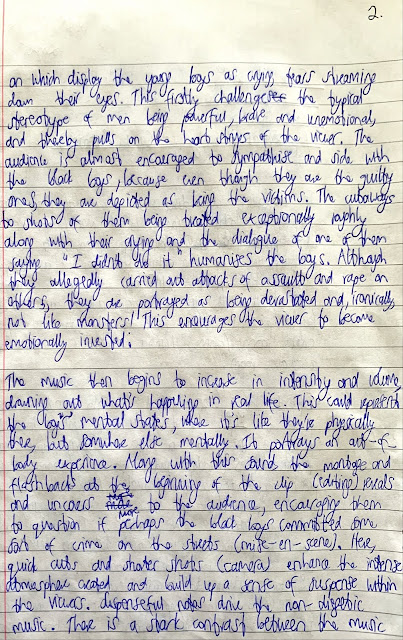 2.
on which display the young boys as crying tears streaming
down their eyes. This firstly challenges the typical
stereotype of men being powerful, brave and unemotional,
and thereby pulls on the heart strings of the viewer. The
audience is almost encouraged to sympathise and side with
the black boys, because even though they are the guilty
ones, they are depicted as being the victims. The cutaways
to shots of them being treated exceptionally roughly
along with their crying and the dialogue of one of them
saying "I didn't do it" humanises the boys. Although
they allegedly carried out attacks of assault and rape on
others, they are portrayed as being devastated and, ironically,
not like monsters! This encourages the viewer to become
emotionally invested.
The music then begins to increase in intensity and volume,
drowning out what's happening in real life. This could represent
the boys' mental states, where it's like they're physically
there, but somewhere else mentally. It portrays an out-of-
body experience. Along with this sound the montage and
flashbacks at the beginning of the clip (editing) reveals
and uncovers more to the audience, encouraging them
to question if perhaps the black boys committed some
sort of crime on the streets (mise-en-scene). Here,
quick cuts and shorter shots (camera) enhance the intense
atmosphere created and build up a sense of suspense within
the viewers. Suspenseful notes drive the non-diegetic
music. There is a stark contrast between the music